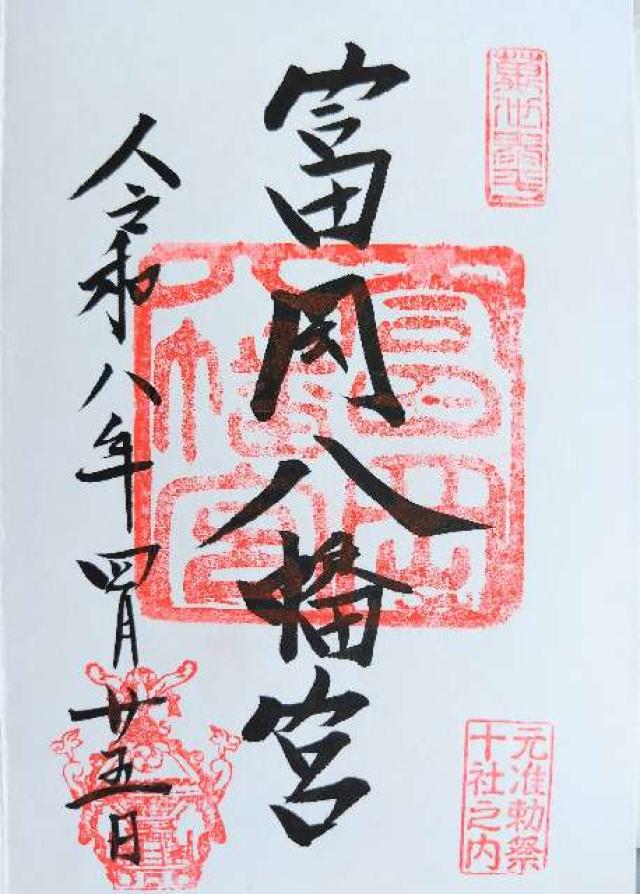 富岡八幡宮
令和八年四月廿五日
富岡八幡宮
元准勅祭
十社之内